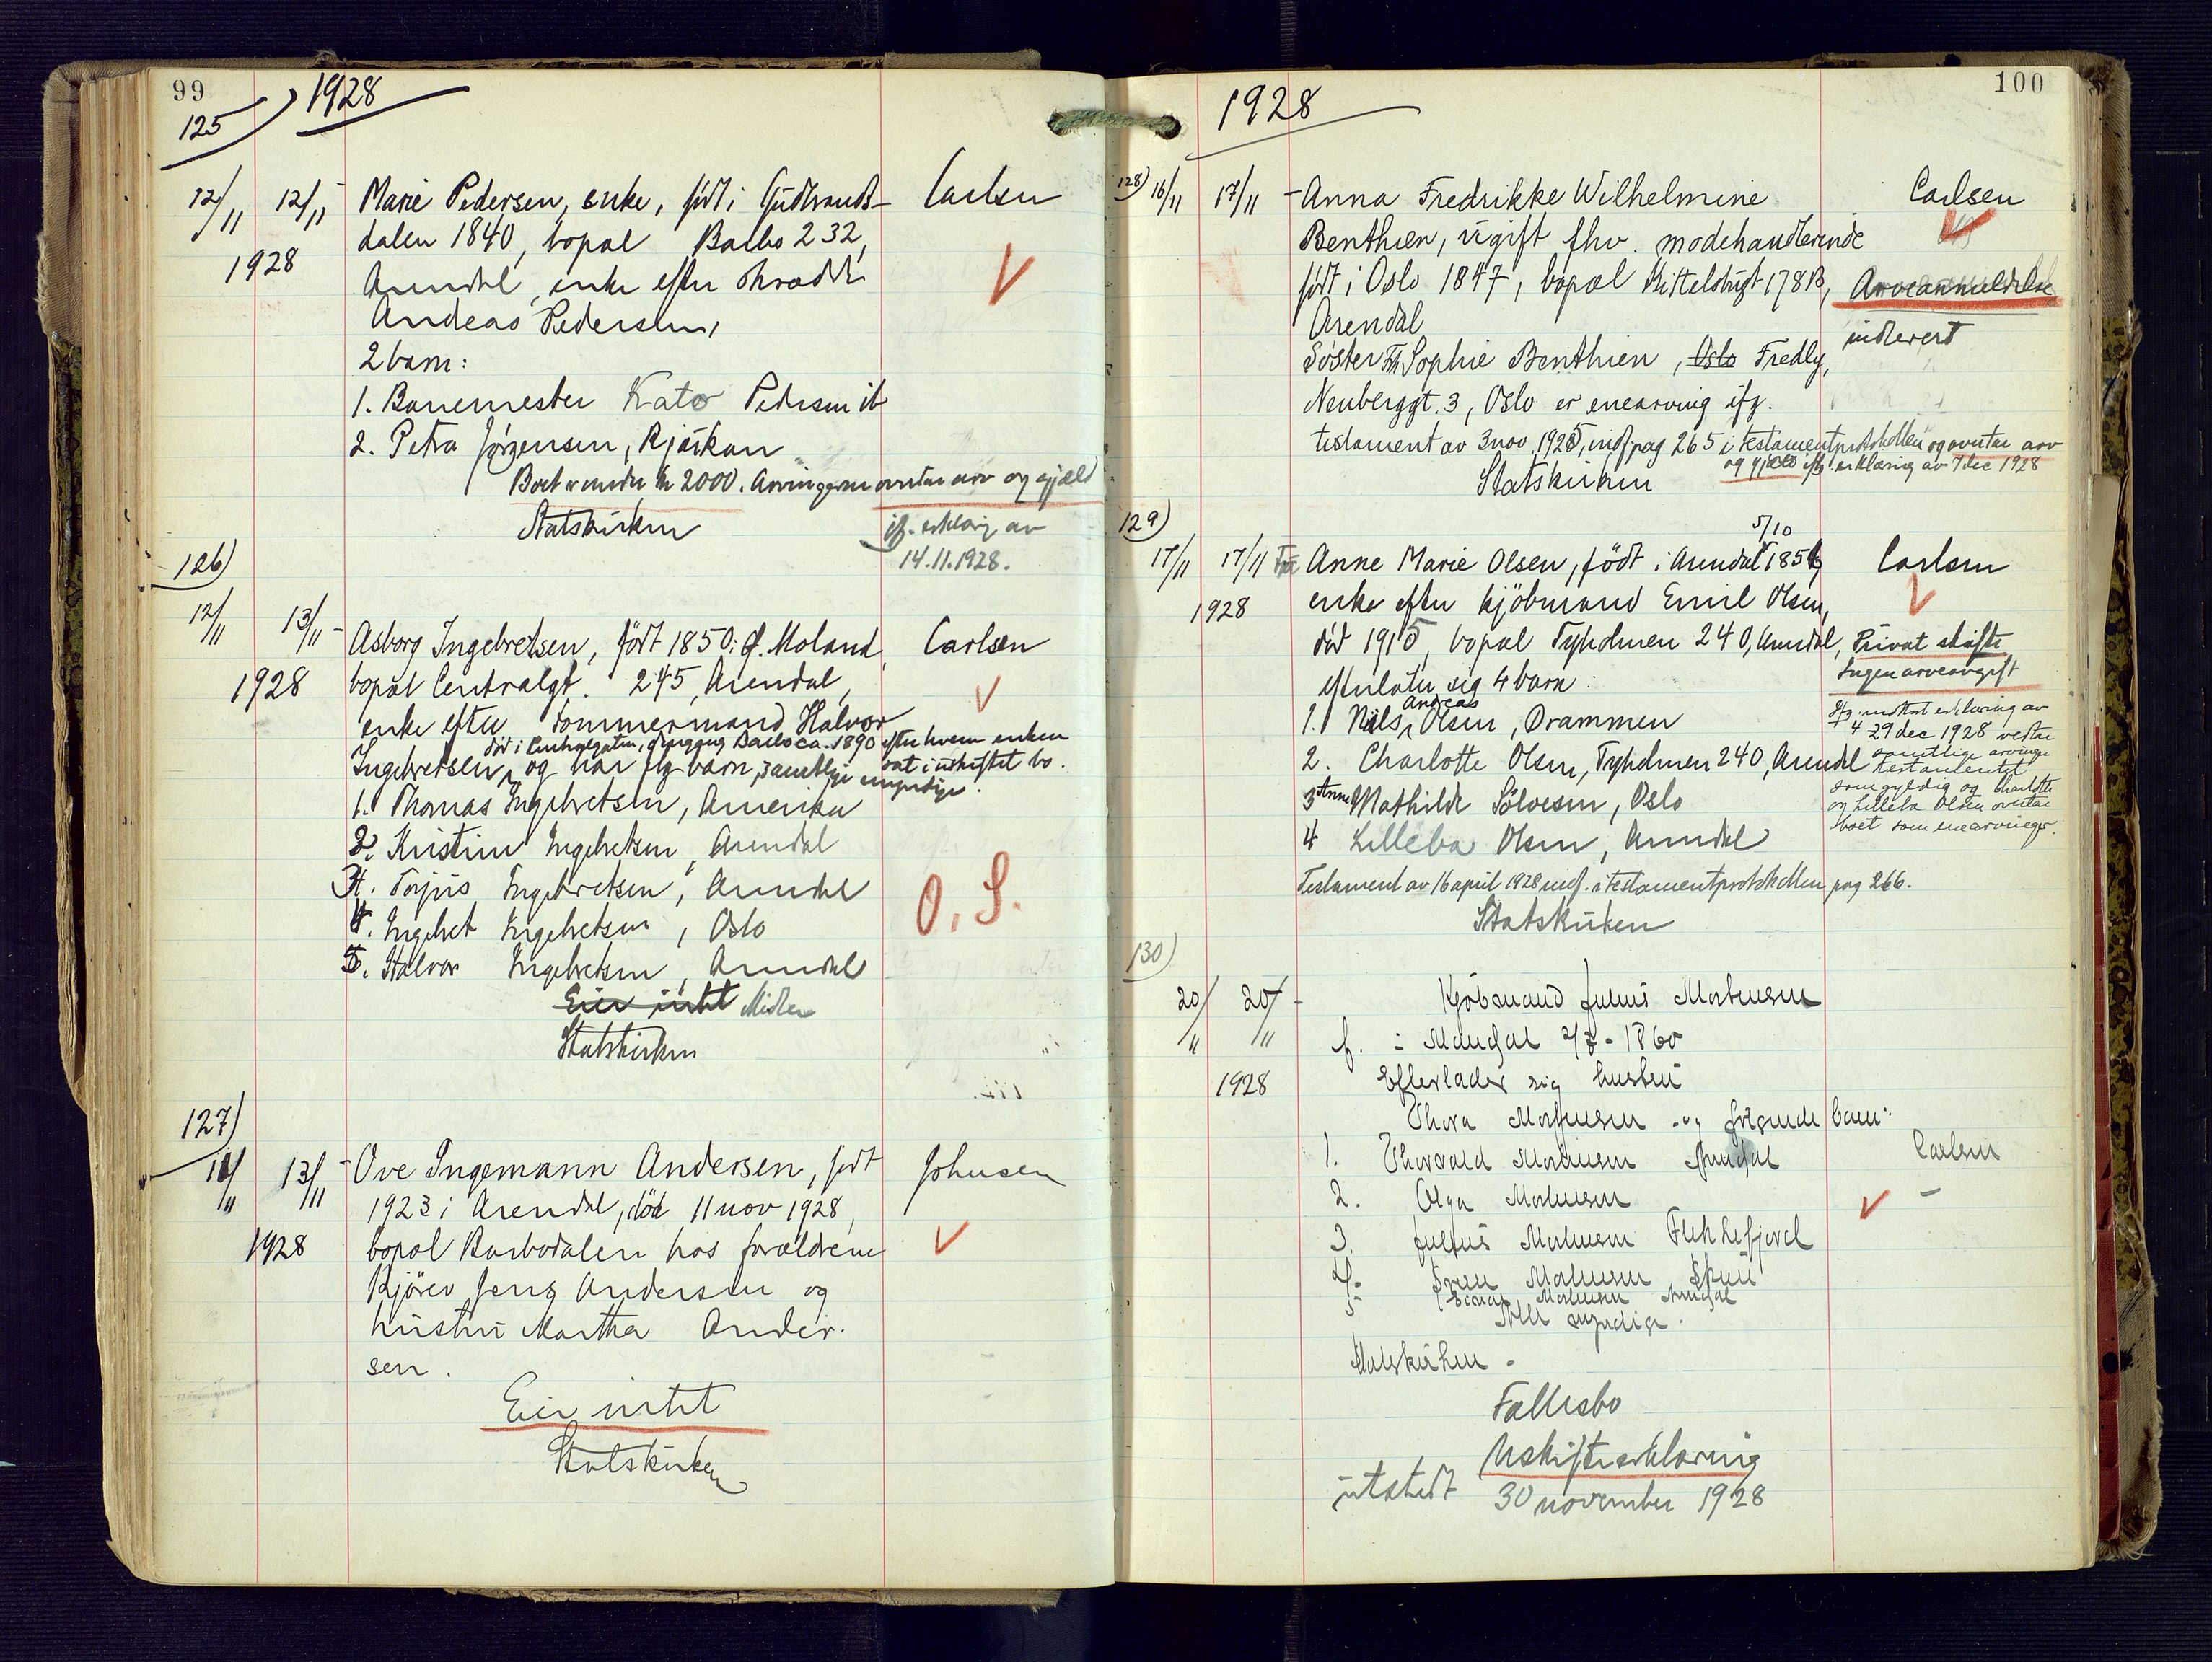 99
1928
125)
12/11 12/11 - Marie Pedersen, enke, født i Gudbrands-
Carlsen
dalen 1840, bopæl Barbo 232,
1928
Arendal, enke efter
Andeas Pedersen,
2 barn:
1. Banemester Kato Pedersen
2. Petra Jørgensen, Rjukan
Boet er under kr 2000. Arvingerne overtar arv og gjæld
ifg. erklæring av
14.11.1928.
Statskirken
126)
12/11 13/11 - Asborg Ingebretsen, født 1850 i Ø. Moland,
Carlsen
1928
bopæl Centralgt. 245, Arendal,
enke efter tømmermand Halvor
død i Centralgaten, dengang Barbo ca. 1890 efter hvem enken
Ingebretsen, og har flg barn, samtlige myndige. sat i uskiftet bo.
1. Thomas Ingebretsen, Amerika
2. Kristine Ingebretsen, Arendal
3. Torjus Ingebretsen, Arendal
O. S.
4. Ingebret Ingebretsen, Oslo
5. Halvor Ingebretsen, Arendal
Eier intet Midler
Statskirken
127)
11/11 13/11 - Ove Ingemann Andersen, født
Johnsen
1923 i Arendal, død 11 nov 1928,
1928
bopæl Barbodalen hos forældrene
Kjørev Jens Andersen og
hustru Martha Ander-
sen.
Eier intet
Statskirken
100
1928
128) 16/11 17/11 - Anna Fredrikke Wilhelmine
Carlsen
Benthien, ugift fhv. modehandlerinde
født i Oslo 1847, bopæl Kittelsbugt 178 B,
Arveanmeldelse
Arendal
indlevert
Søster Frk Sophie Benthien, Oslo Fredly,
Neuberggt. 3, Oslo er enearving ifg.
testament av 3 nov. 1925, indf. pag 265 i testamentprotokollen og overtar arv
og gjæld ifg erklæring av 7 dec 1928
Statskirken
129)
5/10
17/11 17/11 Fru Anne Marie Olsen, født i Arendal 1854
Carlsen
1928
enke efter kjøbmand Emil Olsen,
død 1915, bopæl Tyholmen 240, Arendal,
Privat skifte
efterlater sig 4 barn:
Ingen arveavgift
Andreas
1. Nils Olsen, Drammen
Ifg. mottat erklæring av
4 29 dec 1928 vedtar
2. Charlotte Olsen, Tyholmen 240, Arendal
samtlige arvinger
testamentet
3 Anne Mathilde Sölvesen, Oslo
som gyldig og Charlotte
og Lilleba Olsen overtar
4 Lilleba Olsen, Arendal
boet som enearvinger.
Testament av 16 april 1928 indf. i testamentprotokollen pag 266.
Statskirken
130)
20/11 20/11 - Kjøbmand Julius Mortensen
f. i Mandal 2/7 - 1860
1928
Efterlader sig hustru
Thora Mortensen og følgende barn:
1. Thorvald Mortensen Arendal
Carlsen
2. Olga Mortensen
3. Julius Mortensen Flekkefjord
4. Mortensen
5 Einar Mortensen Arendal
Alle myndige.
Statskirken -
Fællesbo
Uskifteerklæring
utstedt 30 november 1928